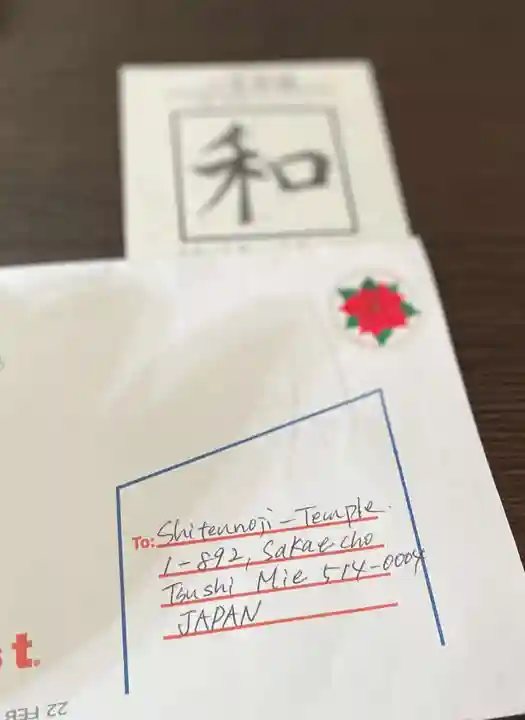 和
To: Shitennoji-Temple
1-892, Sakae-cho
Tsushi Mie 514-0004
JAPAN
t.
22 FEB